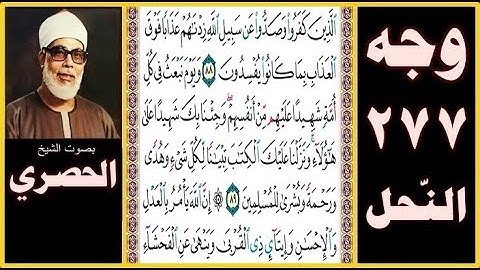 وجه
٢٧٧
النّحل
ٱلَّذِينَ كَفَرُواْ وَصَدُّواْ عَن سَبِيلِ ٱللَّهِ زِدۡنَٰهُمۡ عَذَابٗا فَوۡقَ
ٱلۡعَذَابِ بِمَا كَانُواْ يُفۡسِدُونَ ٨٨ وَيَوۡمَ نَبۡعَثُ فِي كُلِّ
أُمَّةٖ شَهِيدًا عَلَيۡهِم مِّنۡ أَنفُسِهِمۡۖ وَجِئۡنَا بِكَ شَهِيدًا عَلَىٰ
هَٰٓؤُلَآءِۚ وَنَزَّلۡنَا عَلَيۡكَ ٱلۡكِتَٰبَ تِبۡيَٰنٗا لِّكُلِّ شَيۡءٖ وَهُدٗى
وَرَحۡمَةٗ وَبُشۡرَىٰ لِلۡمُسۡلِمِينَ ٨٩ ۞ إِنَّ ٱللَّهَ يَأۡمُرُ بِٱلۡعَدۡلِ
وَٱلۡإِحۡسَٰنِ وَإِيتَآيِٕ ذِي ٱلۡقُرۡبَىٰ وَيَنۡهَىٰ عَنِ ٱلۡفَحۡشَآءِ
بصوت الشيخ
الحصري